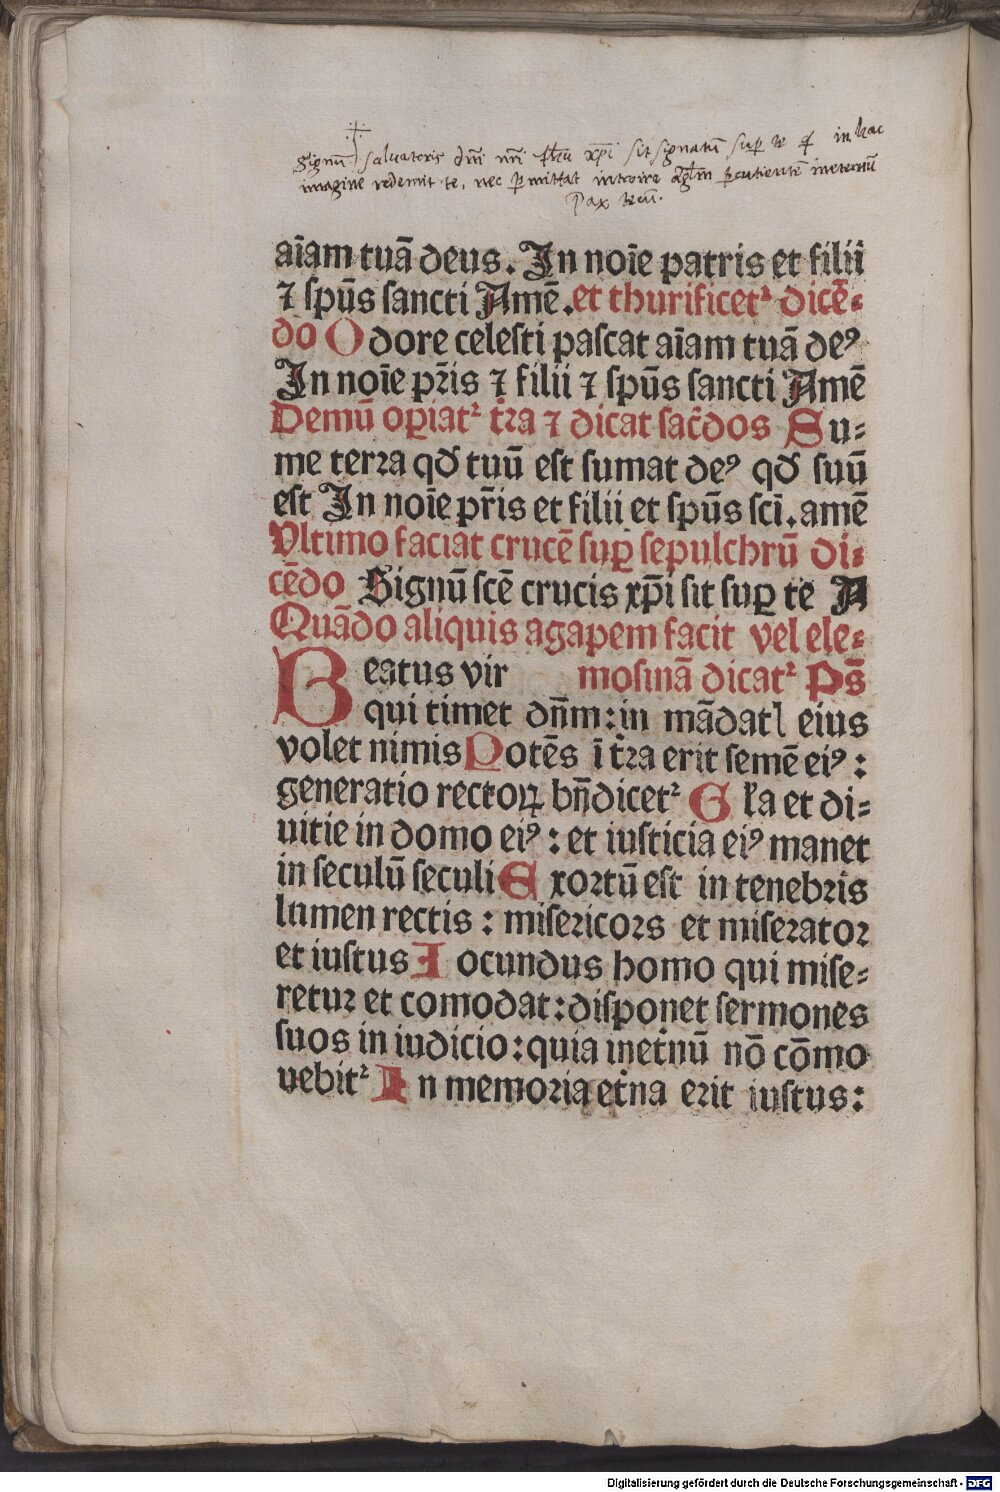 Signū ✠ saluatoris dn̄i nr̄i Jh̄u xp̄i sit signatū sup te q̇ in hac
imagine redemit te, nec ꝑmittat introire agl̄m ꝑcutientē in eternū
Pax tecū.
aīam tuā deus. In noīe patris et filii
⁊ sp̄us sancti Amē. et thurificetᷣ dicē⸗
do Odore celesti pascat aīam tuā deꝰ
In noīe pr̄is ⁊ filii ⁊ sp̄us sancti Amē
Demū oꝑiatᷣ tr̄ra ⁊ dicat sac̄dos Su⸗
me terra qd̄ tuū est sumat deꝰ qd̄ suū
est In noīe pr̄is et filii et sp̄us scī. amē
Vltimo faciat crucē suꝑ sepulchrū di⸗
cēdo Signū scē crucis xp̄i sit suꝑ te A
Quādo aliquis agapem facit vel ele⸗
Beatus vir mosinā dicatᷣ Ps̄
qui timet dn̄m: in mādatꝭ eius
volet nimis Potēs ī tr̄ra erit semē eiꝰ:
generatio rectoꝝ bn̄dicetᷣ Gl̄a et di⸗
uitie in domo eiꝰ: et iusticia eiꝰ manet
in seculū seculi Exortū est in tenebris
lumen rectis: misericors et miserator
et iustus Iocundus homo qui mise⸗
retur et comodat: disponet sermones
suos in iudicio: quia inet̄nū nō cōmo
uebitᷣ In memoria et̄na erit iustus:
Digitalisierung gefördert durch die Deutsche Forschungsgemeinschaft - DFG